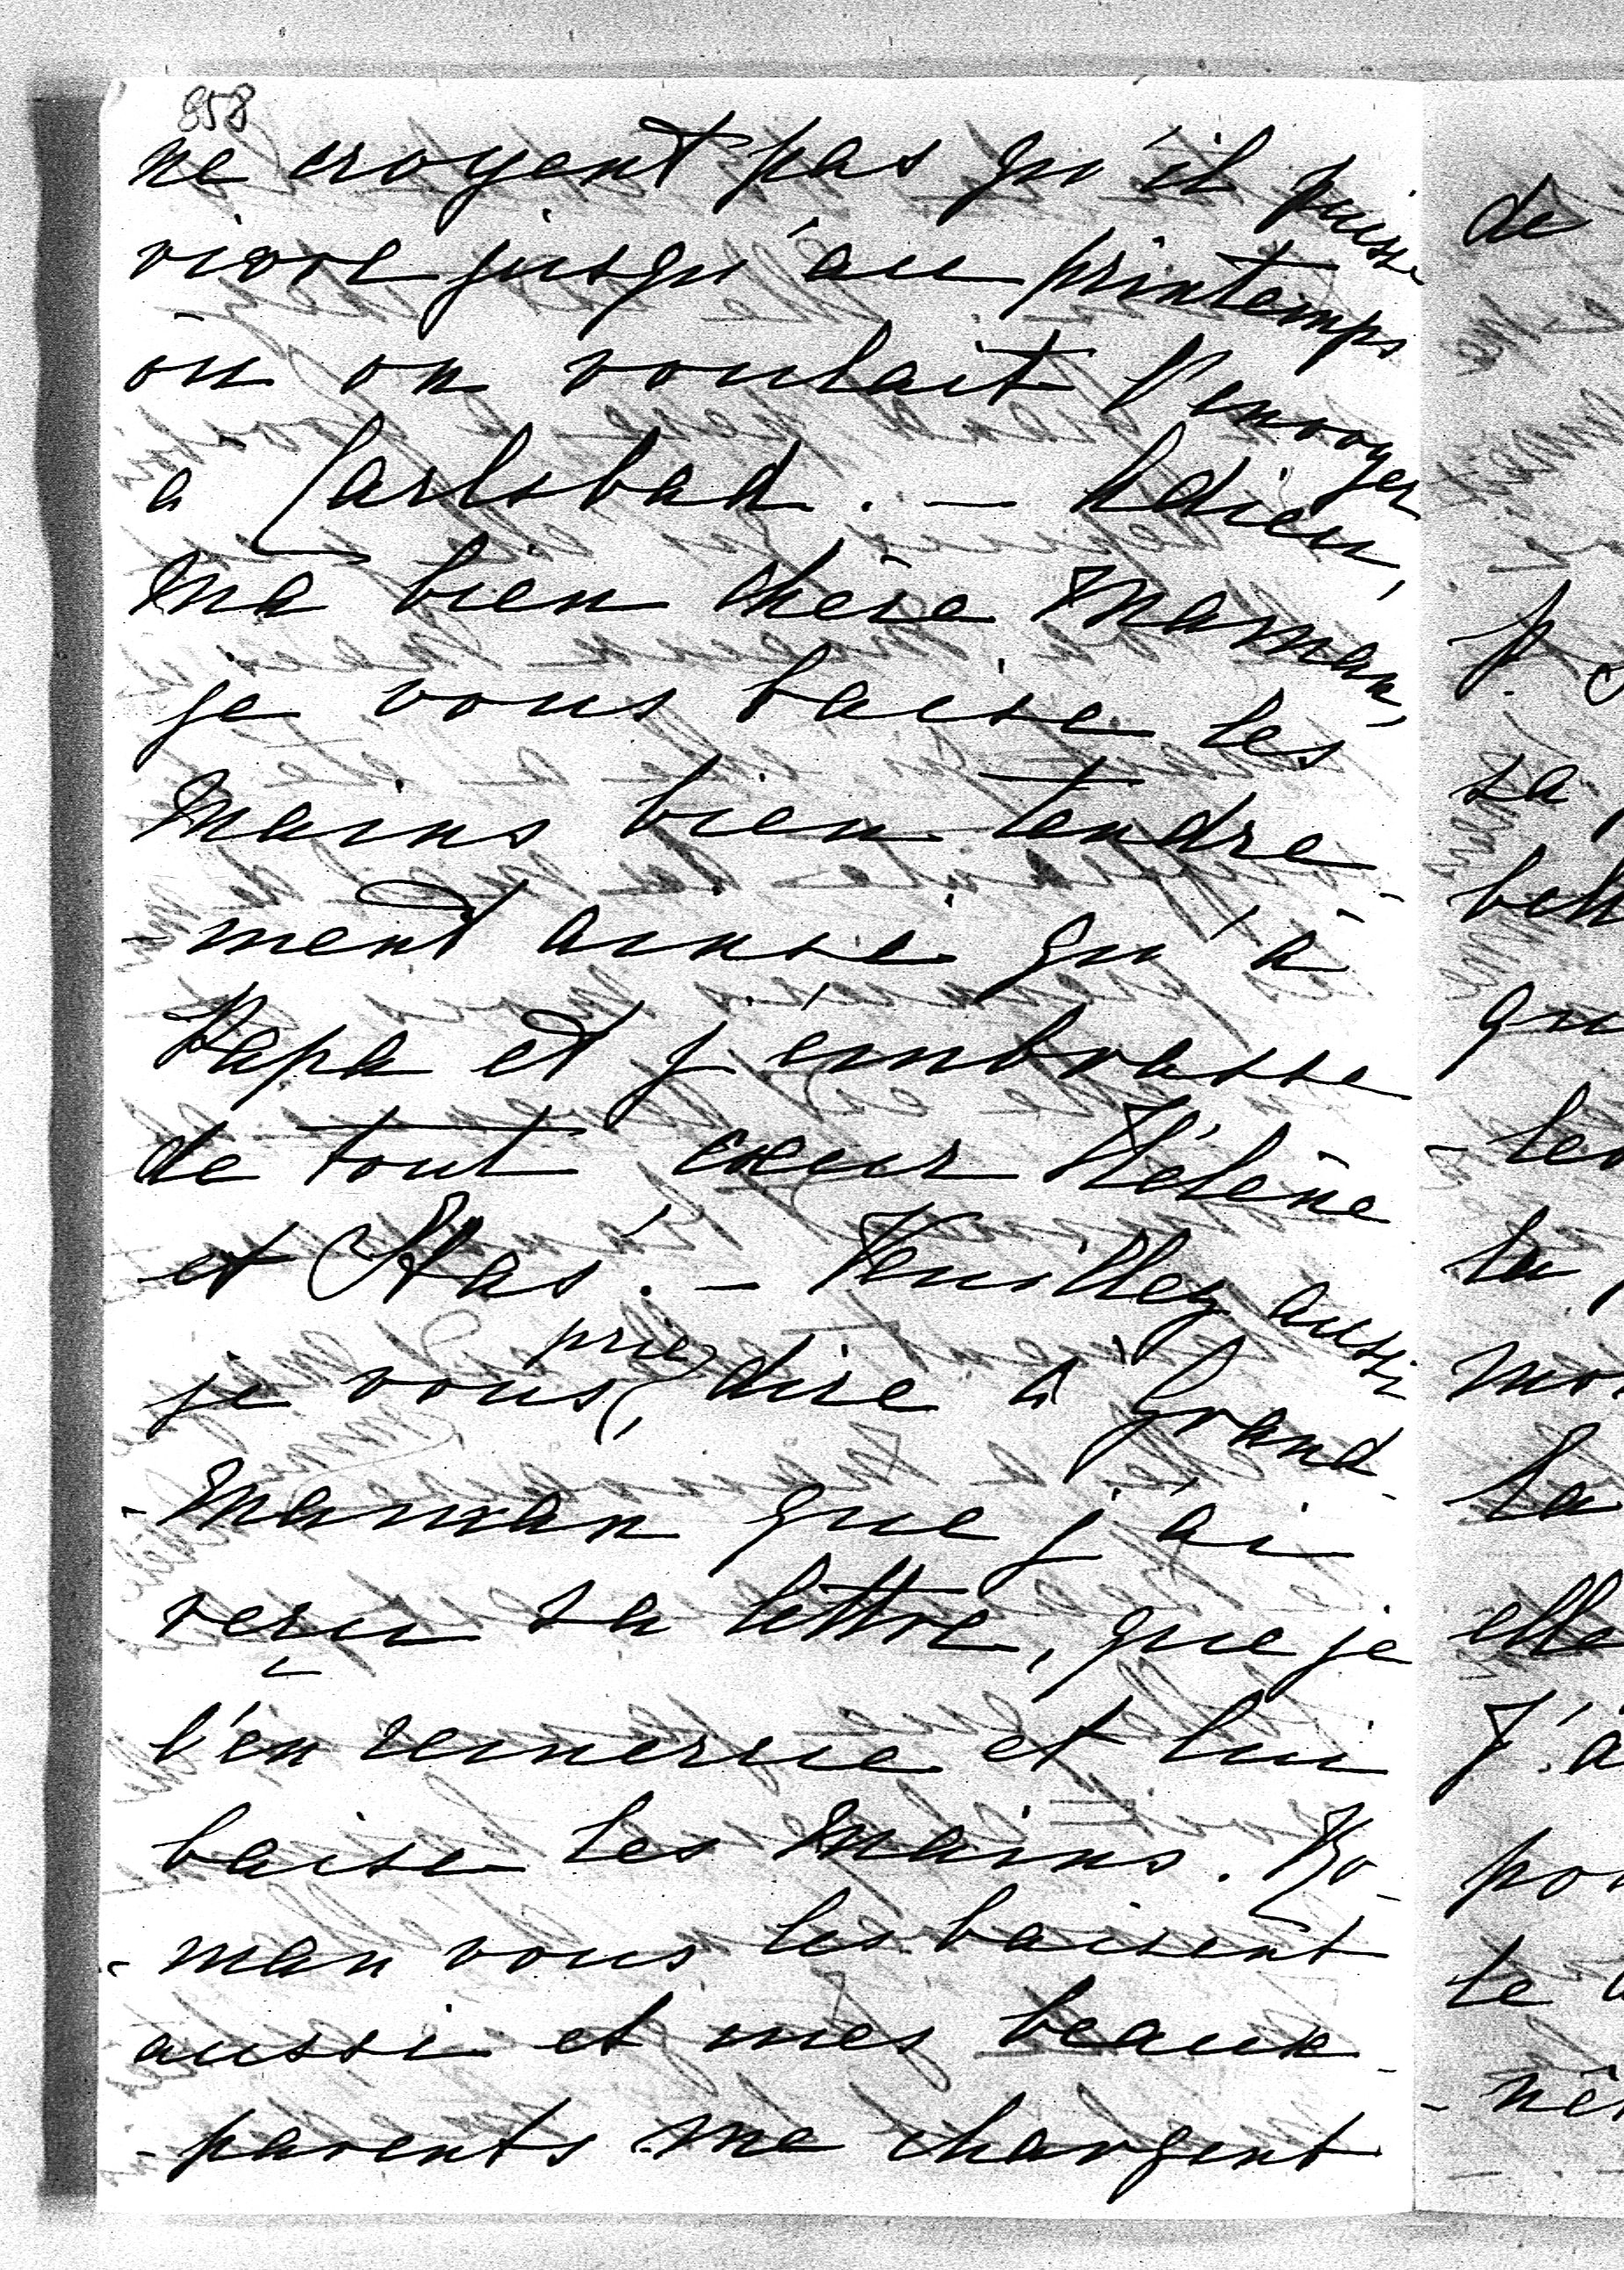 858
ne croyent pas qu'il puisse
vivre jusqu'au printemps
où on voulait l'envoyer
à Carlsbad. — Adieu,
ma bien chère Maman,
je vous baise les
mains bien tendre-
-ment ainsi qu'à
Papa et j'embrasse
de tout cœur Hélène
et Stas. — Veuillez aussi
je vous prie, dire à Grand-
-maman que j'ai
reçu sa lettre, que je
l'en remercie et lui
baise les mains. Ro-
-man vous les baisent
aussi et mes beaux-
-parents me chargent
de
sa
qu
la
la
elle
J'a
te